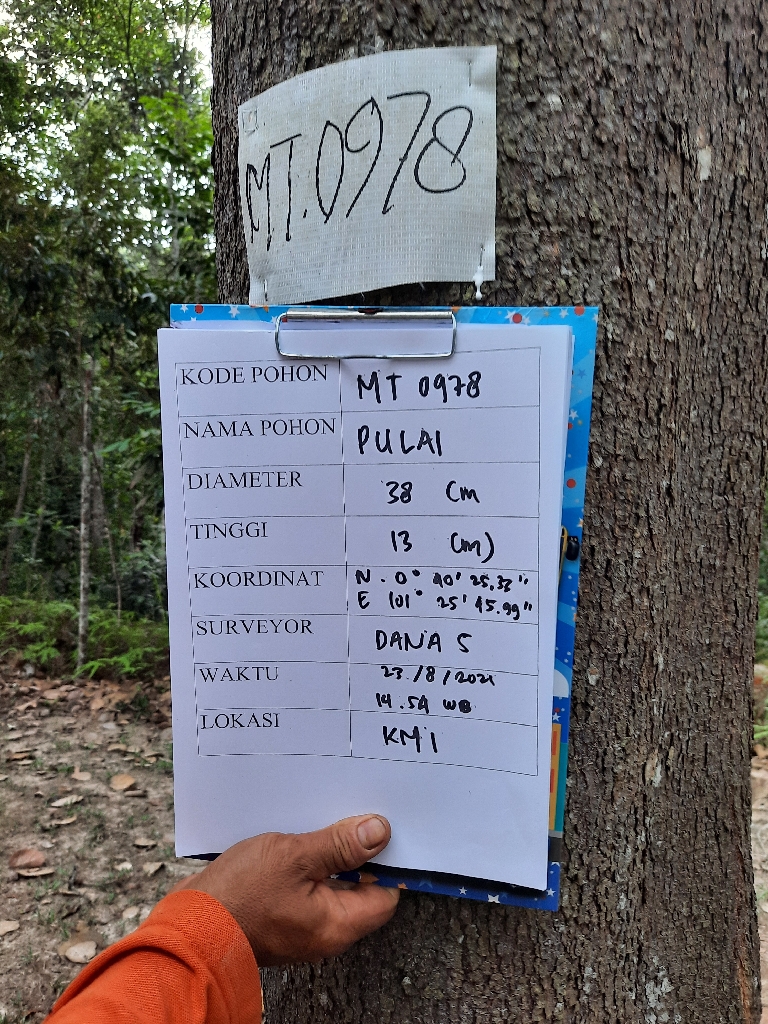 MT.0978
KODE POHON MT 0978
NAMA POHON PULAI
DIAMETER 38 Cm
TINGGI 13 (m)
KOORDINAT N. 0° 40' 25.33"
E 101° 25' 45.99"
SURVEYOR DANA S
WAKTU 23/8/2021
14.54 WB
LOKASI KM 1